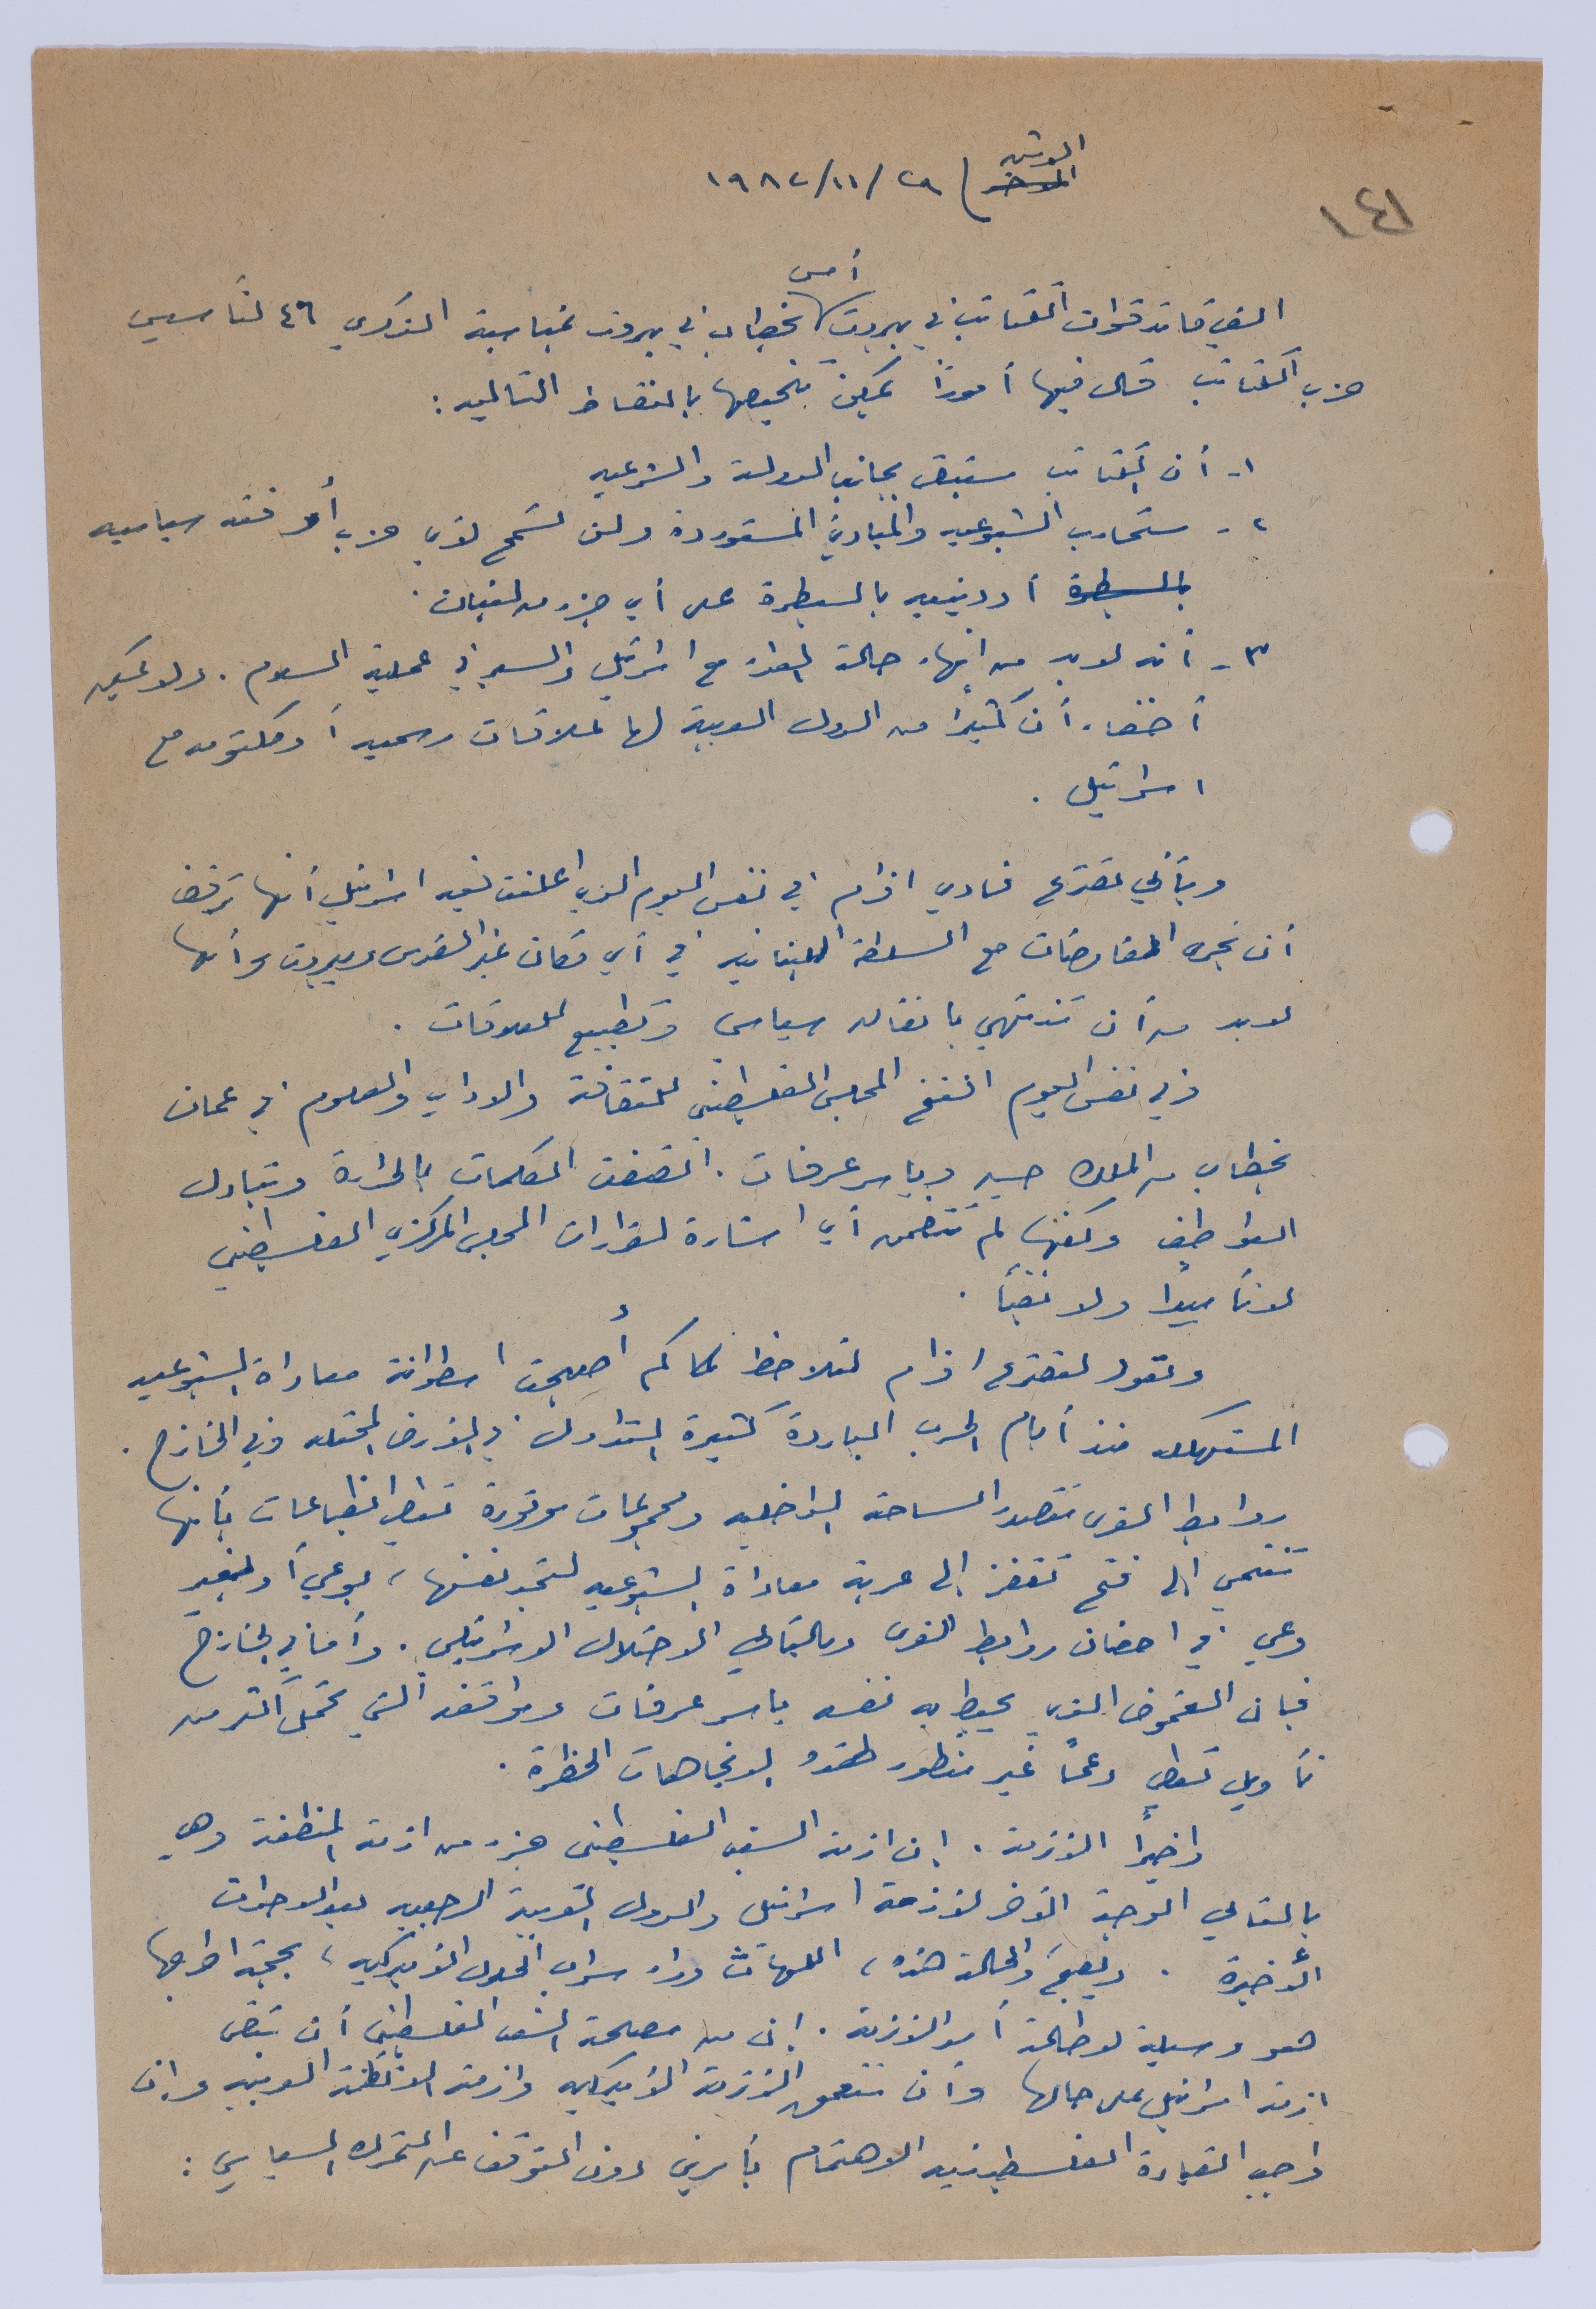 ١٤١
الاثنين
الاحد ) ٢٩/١١/١٩٨٢
أمس
القى قائد قوات الكتائب في بيروت خطاب في بيروت بمناسبة الذكرى ٤٦ لتأسيس
حزب الكتائب قال فيها أموراً يمكن تلخيصها بالنقاط التالية :
١- أن الكتائب ستبقى بجانب الدولة والشرعيه
٢- ستحارب الشيوعيه والمبادئ المستوردة ولن تسمح لأي حزب أو فئه سياسيه
بالسيطرة أو دينيه بالسيطرة على أي جزء من لبنان .
٣- أنه لابد من انهاء حالة العداء مع اسرائيل والسير في عملية السلام . ولا يمكن
أخفاء أن كثيراً من الدول العربية لها علاقات رسميه أو مكتومه مع
اسرائيل .
ويأتي مصرع فادي افرام في نفس اليوم الذي اعلنت فيه اسرائيل أنها ترفض
أن تجري المفاوضات مع السلطة اللبنانيه في أي مكان غير القدس وبيروت وأنها
لابد من أن تنتهي باتفاق سياسي وتطبيع للعلاقات .
وفي نفس اليوم افتتح المجلس الفلسطيني للثقافة والاداب والعلوم في عمان
بخطاب من الملك حسين وياسر عرفات . اتصفت الكلمات بالحرارة وتبادل
العواطف ولكنها لم تتضمن أي اشارة لقرارات المجلس المركزي الفلسطيني
لا تأييدا ولا نفياً .
ونعود لمصرع افرام لنلاحظ كم أصبحت اسطوانة معاداة الشيوعيه
المستهلكه منذ أيام الحرب الباردة كثيرة التداول في الأرض المحتله وفي الخارج .
روابط القرى تتصدر الساحة الداخليه ومجموعات موتورة تعطي انطباعات بأنها
تنتمي الى فتح تقفز إلى عربة معاداة الشيوعيه لتجد نفسها ، بوعي أو بغير
وعي في احضان روابط القرى وبالتالي الاحتلال الاسرائيلي . وأما في الخارج
فإن الغموض الذي يحيط به نفسه ياسر عرفات ومواقفه التي تحمل أكثر من
تأويل تعطي دعماً غير منظور لهذه الاتجاهات الخطرة .
واخيراً الأزمة . إن ازمة الشعب الفلسطيني جزء من ازمة المنطقة وهي
بالتالي الوجه الآخر لأزمة اسرائيل والدول العربية الرجعيه بعد الاحداث
الأخيرة . ويصبح والحالة هذه ، اللهاث وراء سراب الحلول الأميركيه ، بحجة اخراجها
هو وسيلة لإطالة أمد الأزمة . إن من مصلحة الشعب الفلسطيني أن تبقى
ازمة اسرائيل على حالها وأن تتعمق الأزمة الأميركيه وازمة الأنظمة العربيه وإن
واجب القيادة الفلسطينيه الاهتمام بأمرين دون التوقف عن التحرك السياسي :